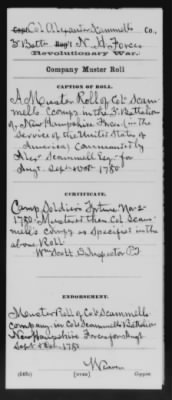 Capt. Col. Alexander Scammell's Co.,
3 Batt'n Reg't N. H. Forces
Revolutionary War.
Company Muster Roll
CAPTION OF ROLL.
A Muster Roll of Col. Scam-
mell's Comp'y in the 3d. Battalion
of New Hampshire Forces in the
Service of the United States of
America, Commanded by
Alex'r Scammell Esqr for
Augt. Sept & Oct 1780
CERTIFICATE.
Camp Soldier's Fortune Nov 2
1780. Mustered then Col. Scam-
mell's Compy as Specified in the
above Roll
Wm Scott B. Inspector
ENDORSEMENT.
Muster Roll of Col. Scammell's
Company in Col. Scammell's Battalion
New Hampshire Forces for Augt.
Sept & Oct. 1780
[OVER]
Copyist.